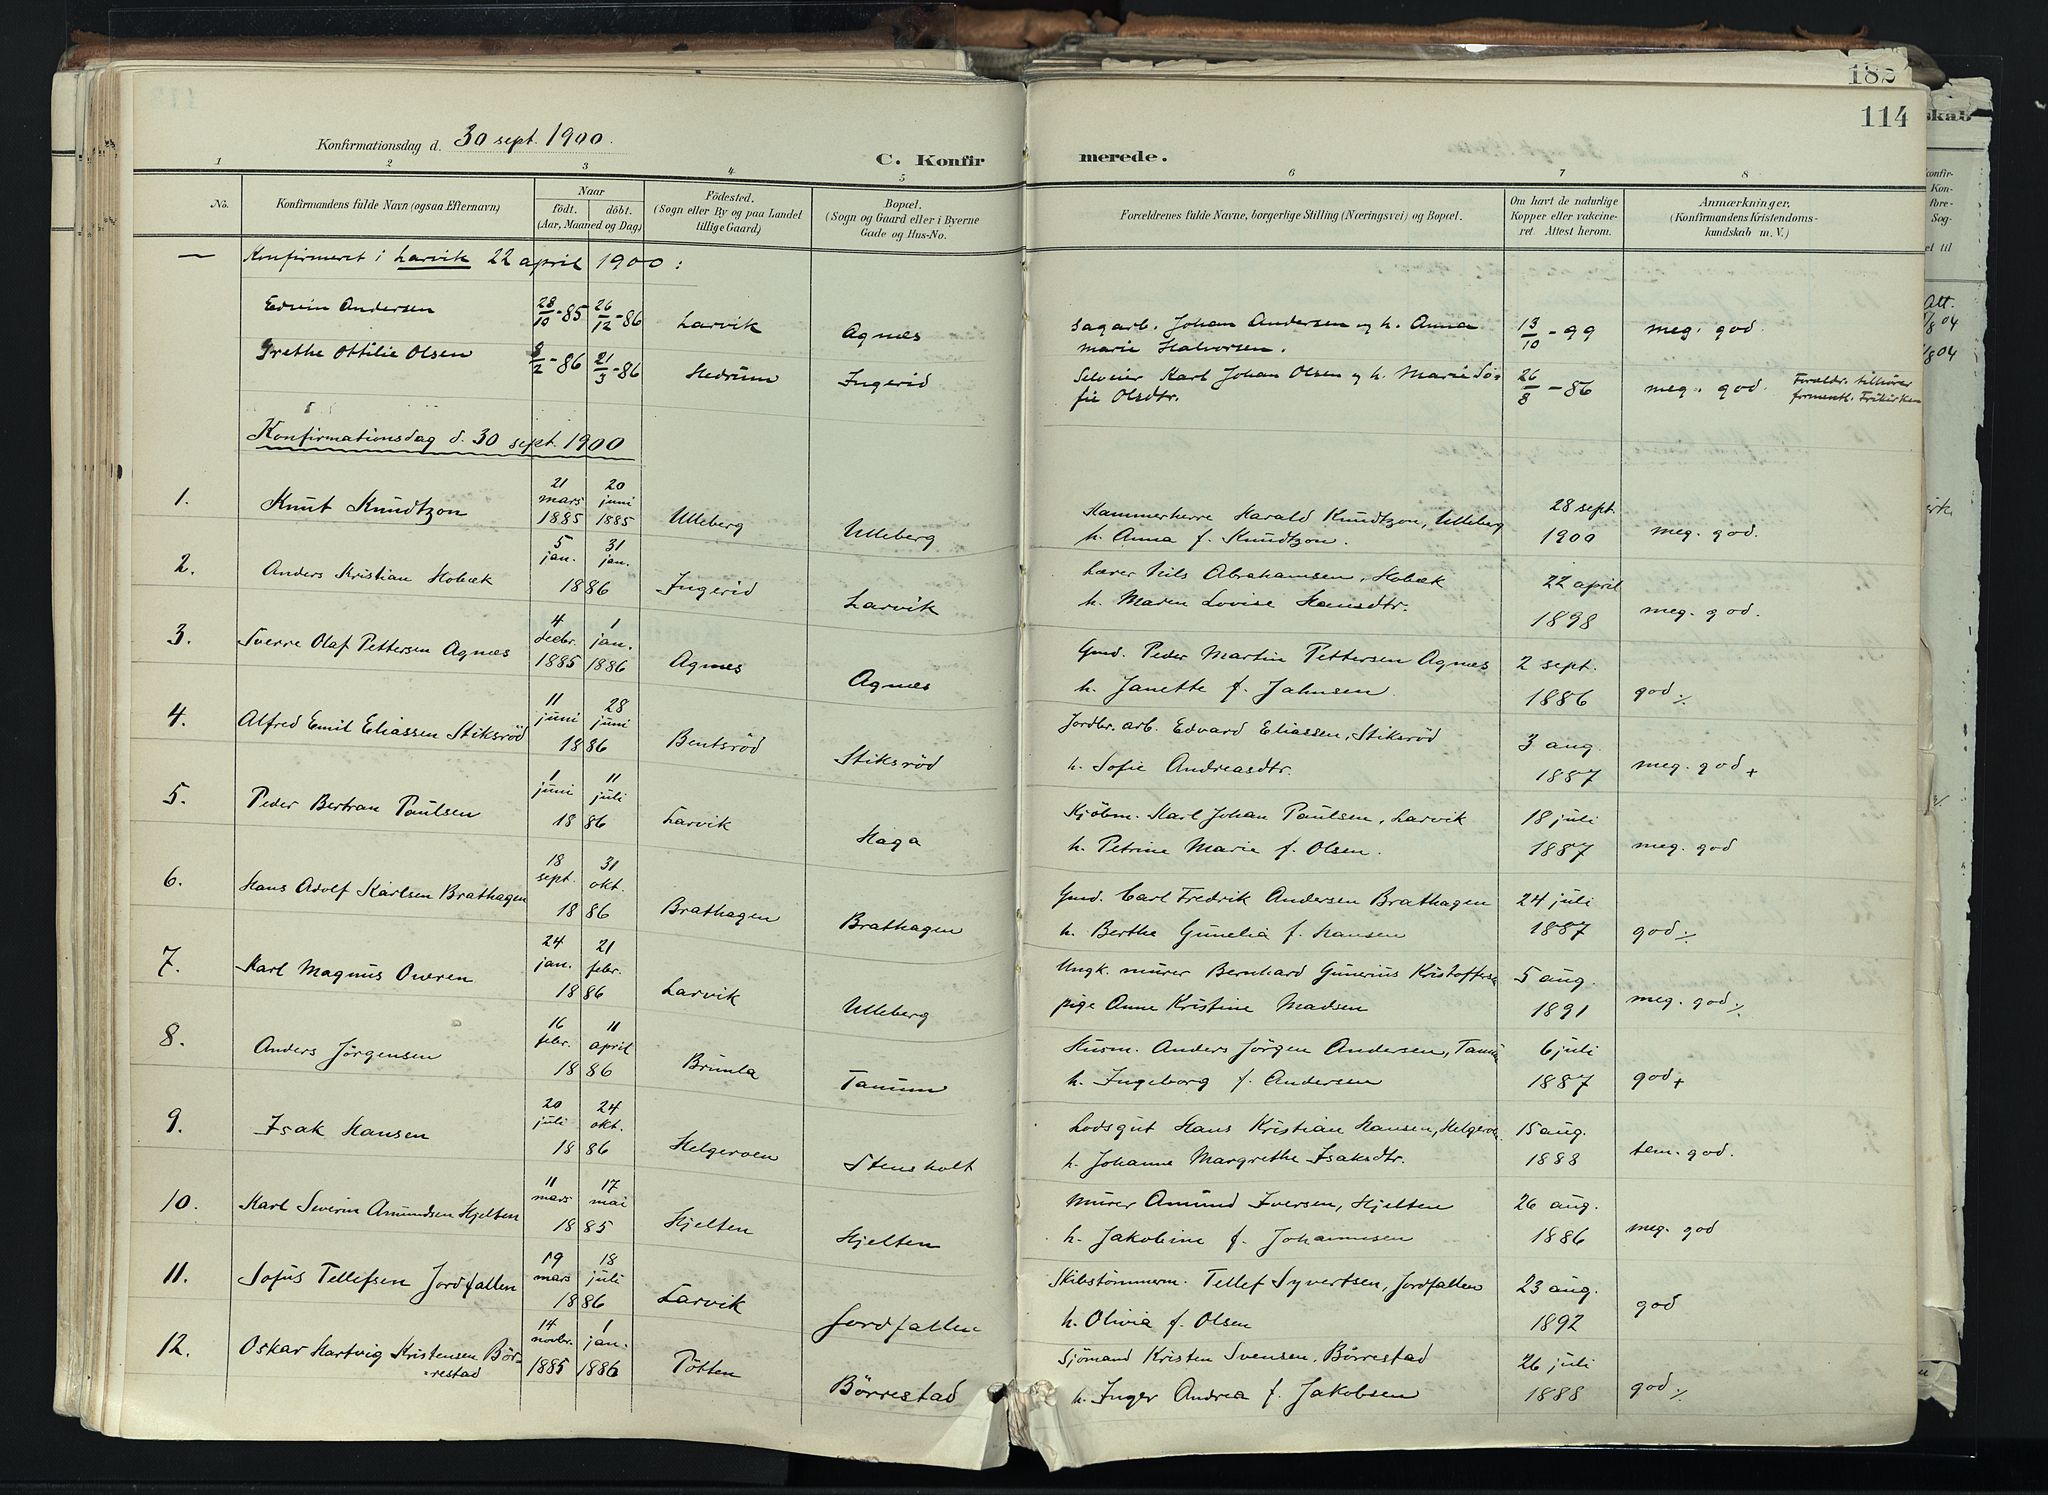 182
114
Konfirmationsdag d. 30 sept. 1900.
C. Konfirmerede.
1 2 3 4 5 6 7 8
No.
Konfirmandens fulde Navn (ogsaa Efternavn)
Naar
födt. döbt.
(Aar, Maaned og Dag)
Födested.
(Sogn eller By og paa Landet
tillige Gaard)
Bopæl.
(Sogn og Gaard eller i Byerne
Gade og Hus-No.
Forældrenes fulde Navne, borgerlige Stilling (Næringsvei) og Bopæl.
Om havt de naturlige
Kopper eller vakcine-
ret. Attest herom.
Anmærkninger,
(Konfirmandens Kristendoms-
kundskab m. V.)
— Konfirmeret i Larvik 22 april 1900:
Edvin Andersen 28/10-85 26/12-86 Larvik Agnæs Sagarb. Johan Andersen og h. Anna
Marie Halvorsen. 13/10-99 meg. god.
Grethe Ottilie Olsen 8/2-86 21/3-86 Hedrum Ingerid Selveier Karl Johan Olsen og h. Marie So-
fie Olsdtr. 26/8-86 meg. god. Foraldr. tilhörer
formentl. Frikirken
Konfirmationsdag d. 30 sept. 1900
1. Knut Knudtzon 21 mars 1885 20 juni 1885 Ulleberg Ulleberg Kammerherre Harald Knudtzon, Ulleberg
h. Anna f. Knudtzon. 28 sept. 1900 meg. god.
2. Anders Kristian Hobæk 5 jan. 31 jan. 1886 Ingerid Larvik Lærer Nils Abrahamsen, Hobæk
h. Maren Lovise Hansdtr. 22 april 1898 meg. god.
3. Sverre Olaf Pettersen Agnæs 4 decbr. 1885 1 jan. 1886 Agnæs Agnæs Gmd. Peder Martin Pettersen Agnæs
h. Janette f. Jahnsen. 2 sept. 1886 god ./.
4. Alfred Emil Eliassen Stiksröd 11 juni 28 juni 1886 Bentsröd Stiksröd Jordbr. arb. Edvard Eliassen, Stiksröd
h. Sofie Andreasdtr. 3 aug. 1887 meg. god +
5. Peder Bertran Paulsen 1 juni 11 juli 1886 Larvik Haga Kjöbm. Karl Johan Paulsen, Larvik
h. Petrine Marie f. Olsen. 18 juli 1887 meg. god
6. Hans Adolf Karlsen Brathagen 18 sept. 31 okt. 1886 Brathagen Brathagen Gmd. Carl Fredrik Andersen Brathagen
h. Berthe Gunelia f. Hansen 24 juli 1887 god ./.
7. Karl Magnus Overen 24 jan. 21 febr. 1886 Larvik Ulleberg Ungk. murer Bernhard Gunerius Kristoffers
pige Anne Kristine Madsen 5 aug. 1891 meg. god ./.
8. Anders Jörgensen 16 febr. 11 april 1886 Brunla Tanum Husm. Anders Jörgen Andersen, Tanum
h. Ingeborg f. Andersen 6 juli 1887 god +
9. Isak Hansen 20 juli 24 okt. 1886 Helgeroen Stensholt Lodsgut Hans Kristian Hansen, Helgeroen
h. Johanne Margrethe Isaksdtr. 15 aug. 1888 tem. god.
10. Karl Severin Amundsen Hjelten 11 mars 17 mai 1885 Hjelten Hjelten Murer Amund Iversen, Hjelten
h. Jakobine f. Johannesen 26 aug. 1886 meg. god
11. Sofus Tellefsen Jordfallen 19 mars 18 juli 1886 Larvik Jordfallen Skibstömmerm. Tellef Syvertsen, Jordfallen
h. Olivia f. Olsen 23 aug. 1892 god
12. Oskar Hartvig Kristensen Bör-
restad 14 novbr. 1885 1 jan. 1886 Pötten Börrestad Sjömand Kristen Svensen, Börrestad
h. Inger Andrea f. Jakobsen 26 juli 1888 god ./.